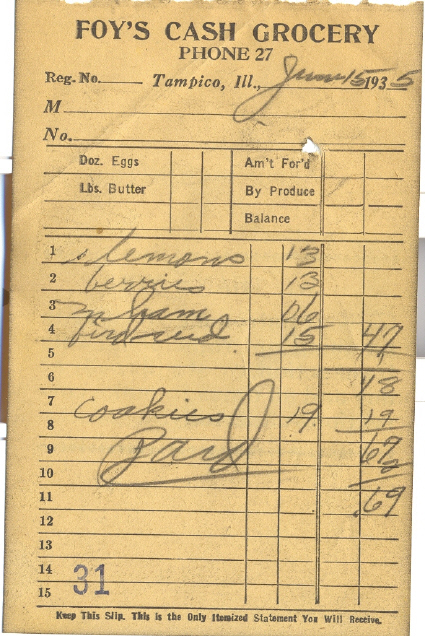 FOY'S CASH GROCERY
PHONE 27
Reg. No. Tampico, Ill., June 15 1935
M
No.
Doz. Eggs Am't For'd
Lbs. Butter By Produce
Balance
1 lemons 13
2 berries 13
3 ham 06
4 bird seed 15 47
5 1
6 48
7 cookies 19 19
8
9 Paid 67
10 2
11 .69
12
13
14
15 31
Keep This Slip. This is the Only Itemized Statement You Will Receive.